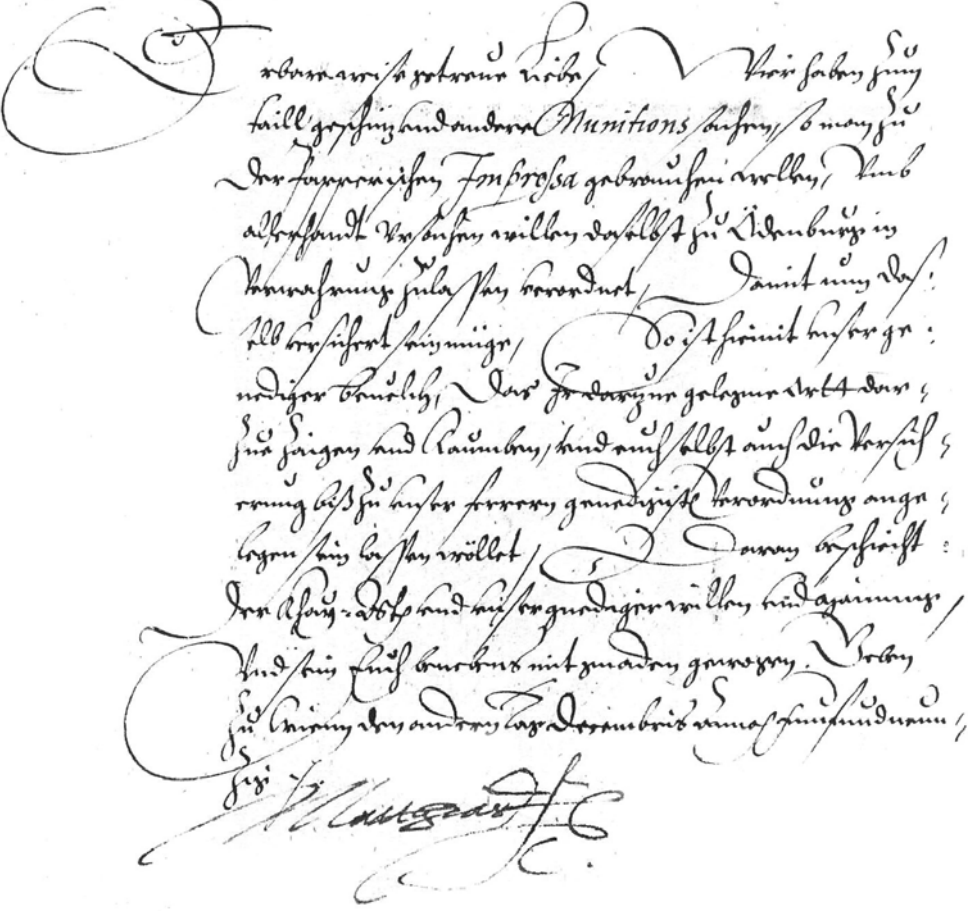 Erbare weise getreue Liebe, Wir haben zum
taill geschüz vnd andere Munitions sachen, so man zu
der Papperischen Impressa gebrauchen wellen, Vmb
allerhandt Vrsachen willen daselbst zu Ödenburg in
Verwahrung zulassen verordnet, Damit nun das=
selb versichert sein müge, So ist hiemit vnser ge=
nediger beuelch, Das Ir darzue gelegne Ortt dar=
zue zaigen vnd Raumben, vnd euch selbst auch die Versich=
erung biß zu vnser ferrern genedigisten Verordnung ange=
legen sein lassen wöllet, Daran beschiecht
der Khay: vnd vnser gnediger willen vnd mainung,
Vnd sein Euch benebens mit gnaden gewogen. Geben
zu Wienn den andern tag Decembris Anno fünfundneun=
zig